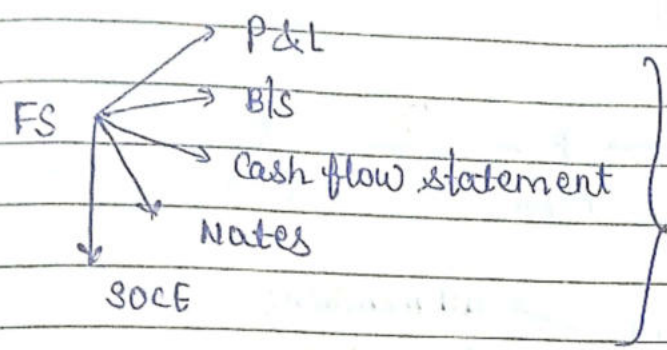 P&L
B/S
FS
Cash flow statement
Nates
SOCE